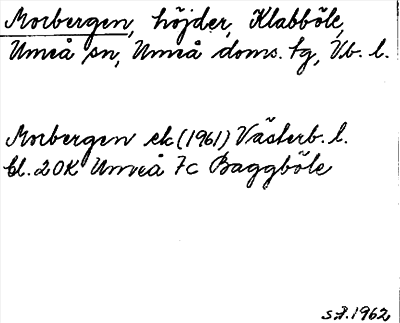 Morbergen, höjder, Klabböle,
Umeå sn, Umeå doms. tg, Vb. l.
Morbergen ek (1961) Västerb. l.
bl. 20K Umeå 7c Baggböle
1962